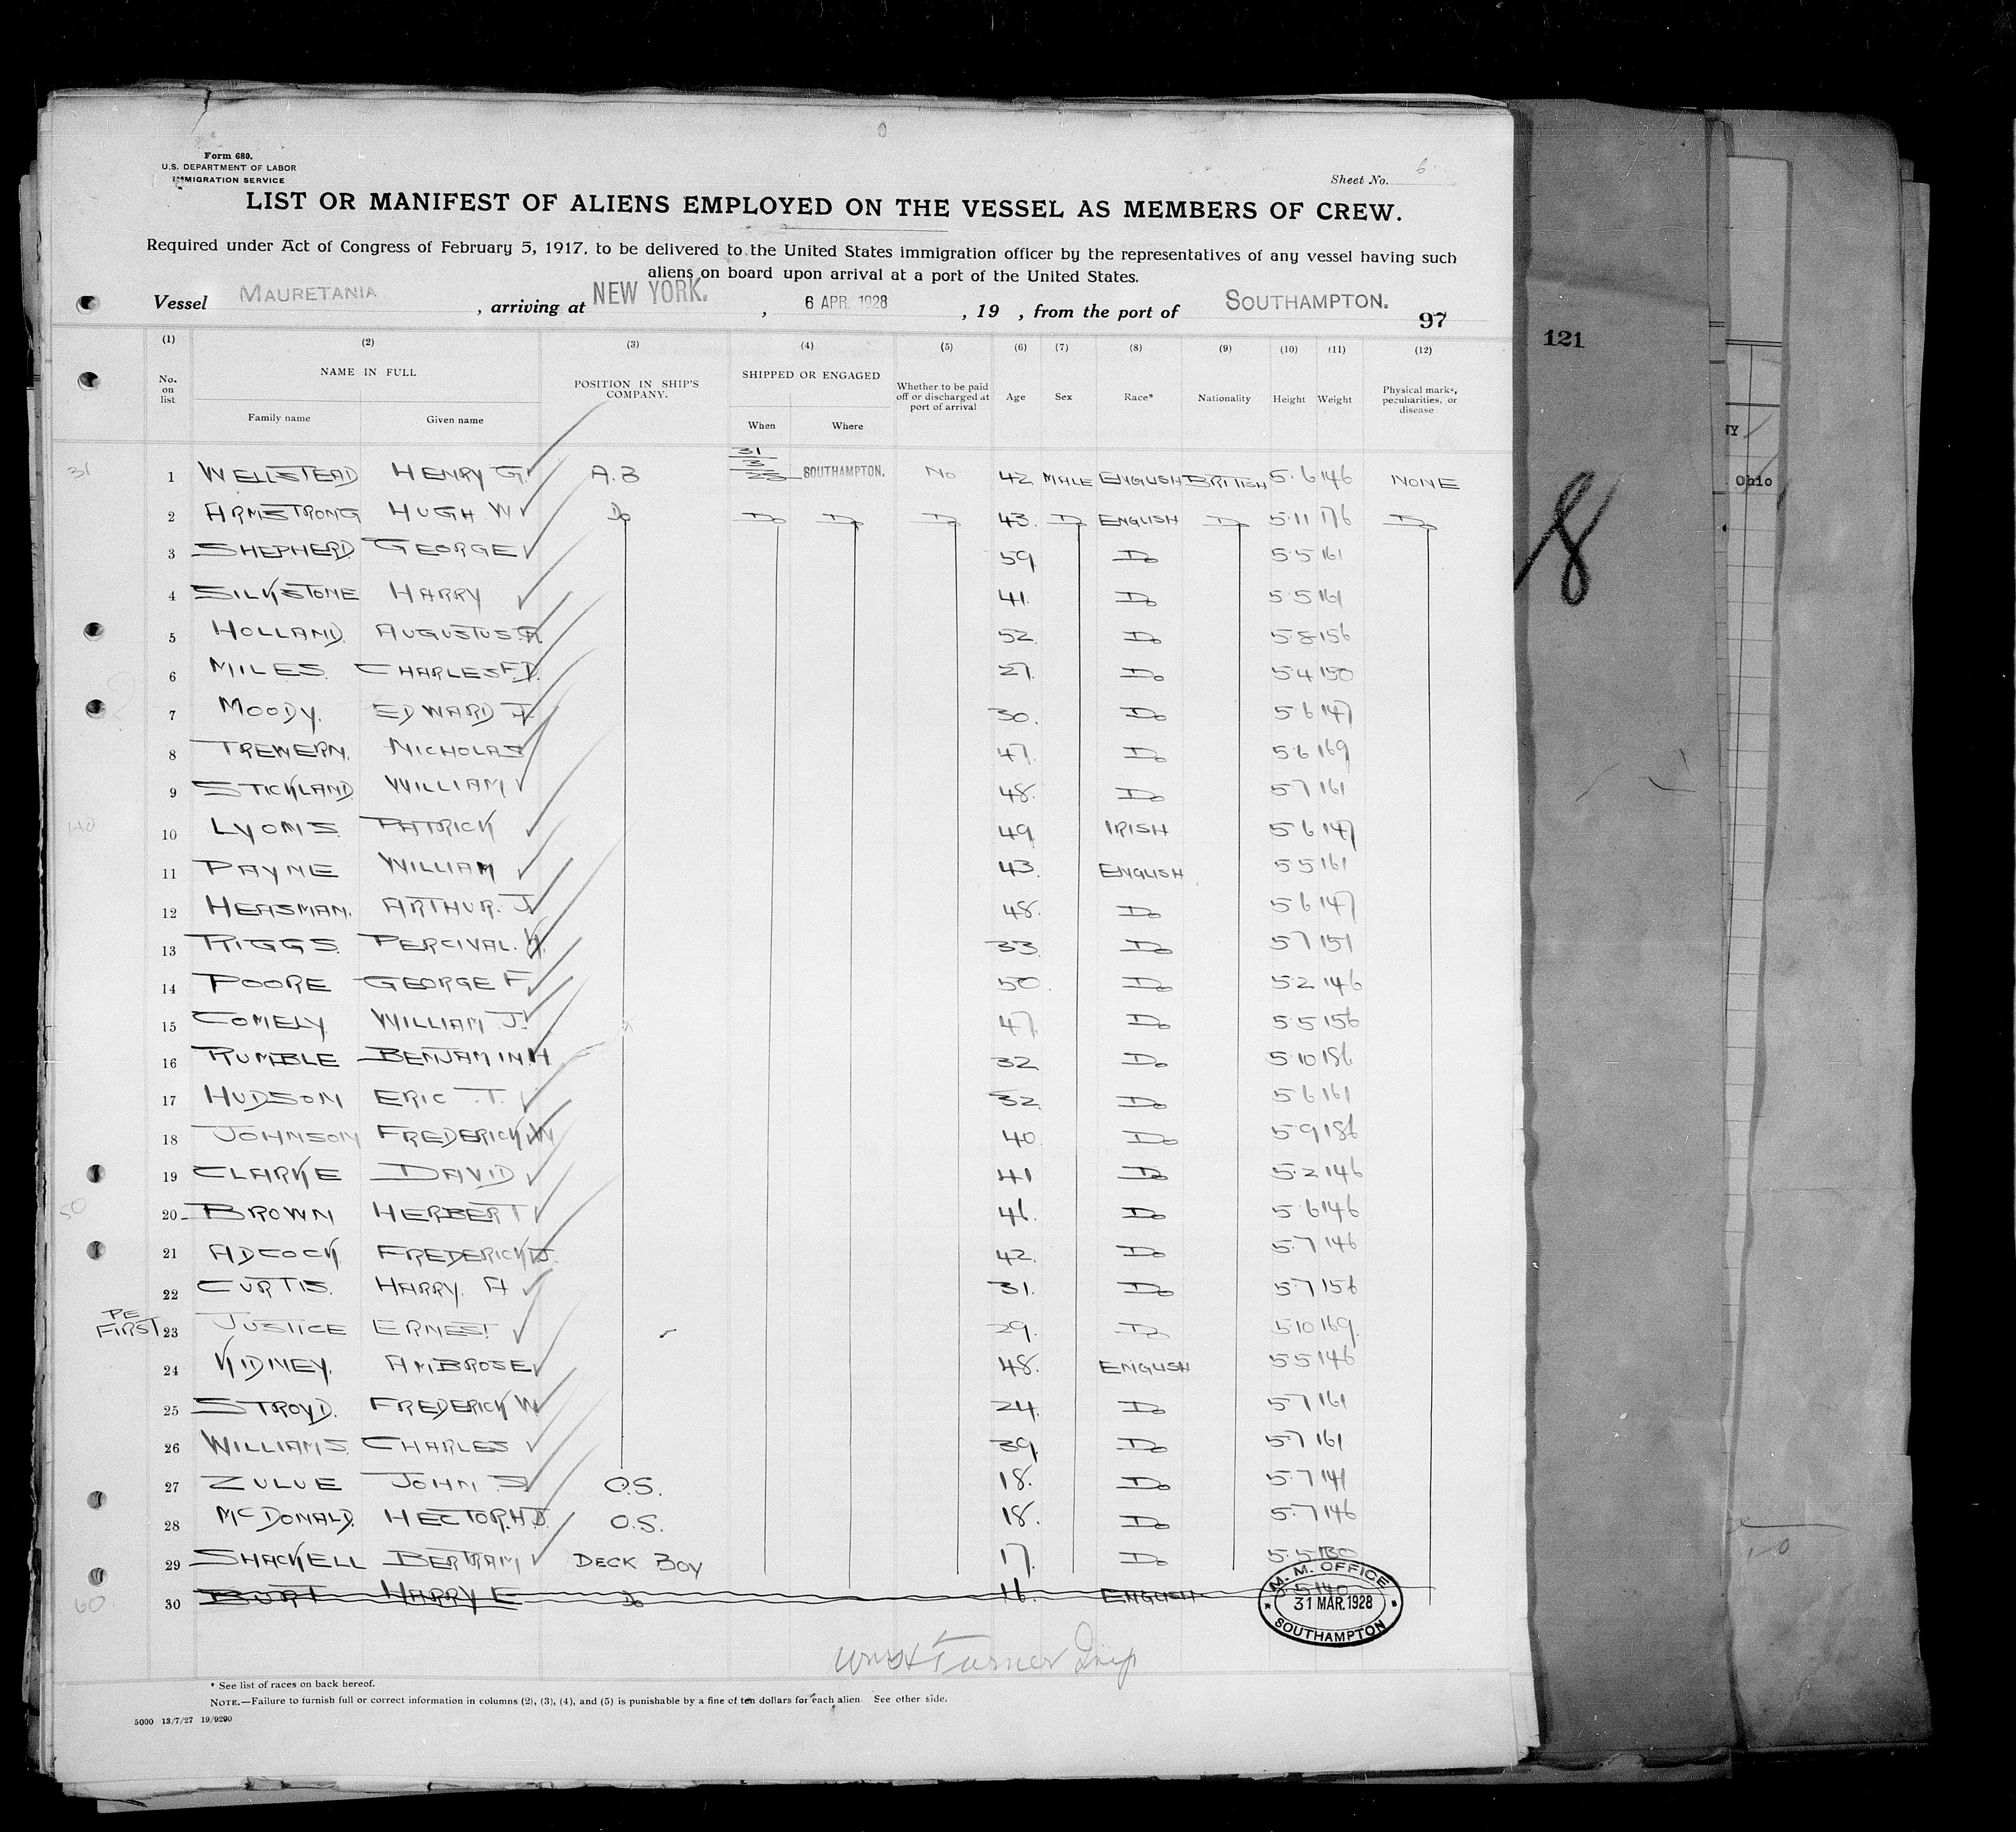 Form 680.
U.S. DEPARTMENT OF LABOR
IMMIGRATION SERVICE
Sheet No. 6
LIST OR MANIFEST OF ALIENS EMPLOYED ON THE VESSEL AS MEMBERS OF CREW.
Required under Act of Congress of February 5, 1917, to be delivered to the United States immigration officer by the representatives of any vessel having such
aliens on board upon arrival at a port of the United States.
Vessel MAURETANIA, arriving at NEW YORK., 6 APR. 1928, 19 , from the port of SOUTHAMPTON.
97
121
(1) (2) (3) (4) (5) (6) (7) (8) (9) (10) (11) (12)
No. on list NAME IN FULL Family name Given name POSITION IN SHIP'S COMPANY. SHIPPED OR ENGAGED When Where Whether to be paid off or discharged at port of arrival Age Sex Race* Nationality Height Weight Physical marks, peculiarities, or disease
31 1 WELLSTEAD HENRY G. A.B 31 3 28 SOUTHAMPTON. No 42 MALE ENGLISH BRITISH 5.6 146 NONE
2 ARMSTRONG HUGH W Do Do Do Do 43. Do ENGLISH Do 5.11 176 Do
3 SHEPHERD GEORGE 59 Do 5.5 161
4 SILKSTONE HARRY 41. Do 5.5 161
5 HOLLAND. AUGUSTUS.A 52. Do 5.8 156
6 MILES. CHARLES F.D. 27. Do 5.4 150
7 MOODY. EDWARD J. 30. Do 5.6 147
8 TREWERN. NICHOLAS 47. Do 5.6 169
9 STICKLAND. WILLIAM 48. Do 5.7 161
40 10 LYONS. PATRICK 49. IRISH 5.6 147
11 PAYNE WILLIAM 43. ENGLISH. 5.5 161
12 HEASMAN. ARTHUR. J 48. Do 5.6 147
13 RIGGS. PERCIVAL. H. 33. Do 5.7 151
14 POORE GEORGE F. 50. Do 5.2 146
15 COMELY. WILLIAM J. 47. Do 5.5 156
16 RUMBLE BENJAMIN.H 32 Do 5.10 186
17 HUDSON ERIC .T. 32. Do 5.6 161
18 JOHNSON FREDERICK.W 40. Do 5.9 186
19 CLARKE DAVID 41 Do 5.2 146
50 20 BROWN HERBERT 46. Do 5.6 146
21 ADCOCK FREDERICK J. 42. Do 5.7 146
22 CURTIS. HARRY. A 31. Do 5.7 156
PE FIRST 23 JUSTICE ERNEST 29. Do 5.10 169.
24 KIDNEY. AMBROSE 48. ENGLISH 5.5 146
25 STROYD. FREDERICK W 24. Do 5.7 161
26 WILLIAMS. CHARLES 39. Do 5.7 161
27 ZULUE JOHN. O.S. 18. Do 5.7 141
28 McDONALD. HECTOR.H.J. O.S. 18. Do 5.7 146
29 SHACKELL BERTRAM DECK BOY 17. Do 5.5 130
60. 30 BURT HARRY E Do 16. ENGLISH 5.5 140
M. M. OFFICE
31 MAR. 1928
SOUTHAMPTON
Turner Insp
* See list of races on back hereof.
NOTE.—Failure to furnish full or correct information in columns (2), (3), (4), and (5) is punishable by a fine of ten dollars for each alien. See other side.
5000 13/7/27 19/9290
8
NY
Ohio